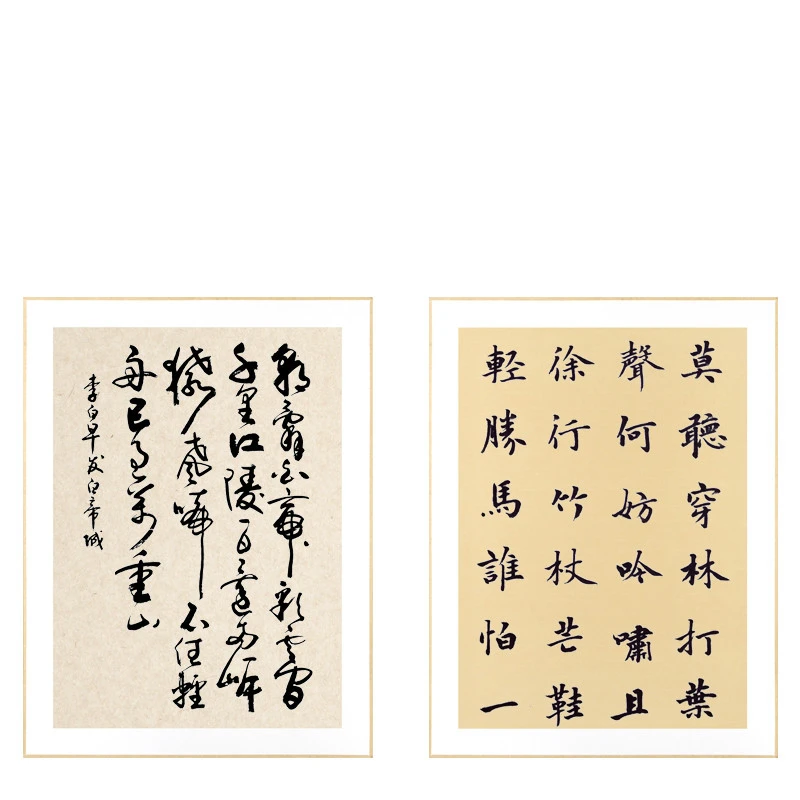 朝辭白帝彩雲間
千里江陵一日還兩岸
猿聲啼不住輕
舟已過萬重山
李白早发白帝城
莫聽穿林打葉
聲何妨吟嘯且
徐行竹杖芒鞋
輕勝馬誰怕一